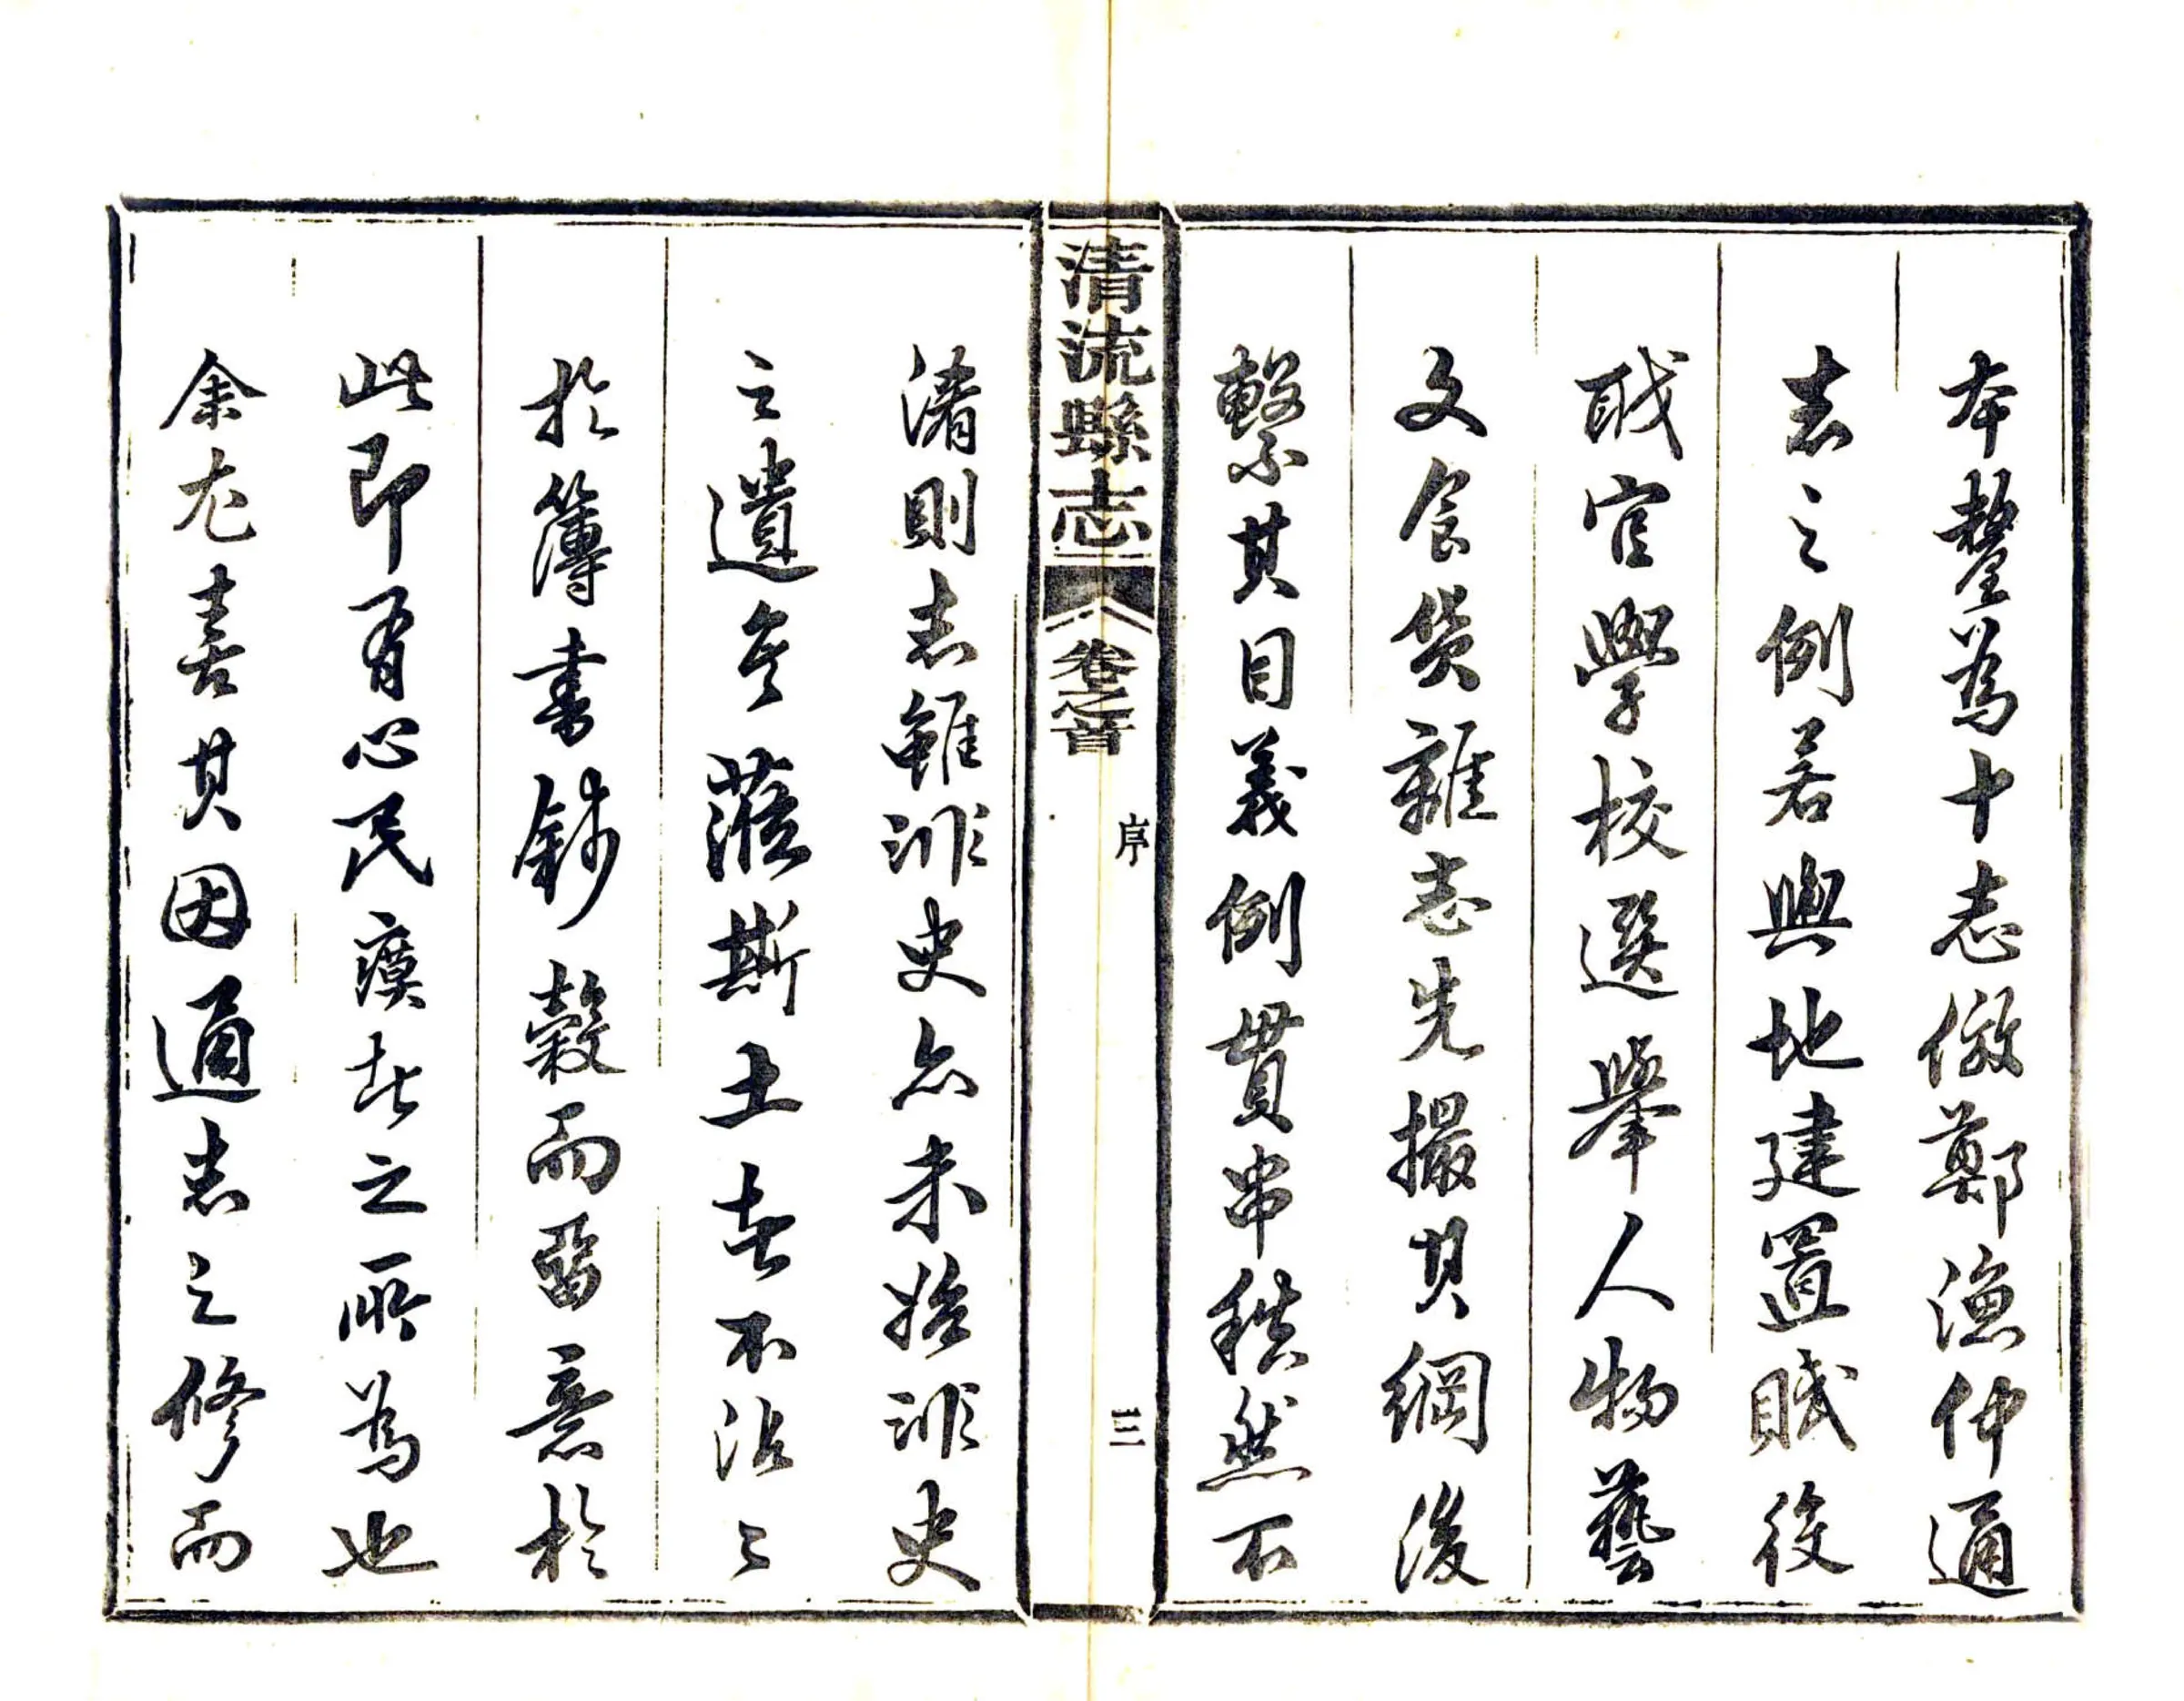 本釐為十志倣鄭漁仲通
志之例若輿地建置賦役
職官學校選舉人物藝
文食貨雜志先撮其綱後
繫其目義例貫串秩然不
清流縣志 卷之首 序 三
淆則志雖非史亦未始非史
之遺矣蒞斯土者不沾〻
於簿書錢穀而留意於
此即有心民瘼者之所為也
余尤喜其因通志之修而